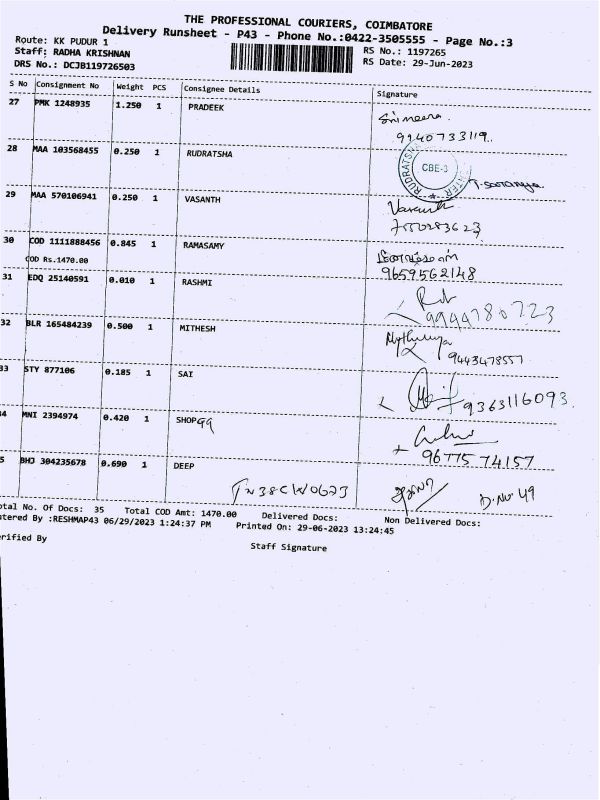 THE PROFESSIONAL COURIERS, COIMBATORE
Delivery Runsheet - P43 - Phone No.:0422-3505555 - Page No.:3
Route: KK PUDUR 1
RS No.: 1197265
Staff: RADHA KRISHNAN
RS Date: 29-Jun-2023
DRS No.: DCJB119726503
S No Consignment No Weight PCS Consignee Details Signature
27 PMK 1248935 1.250 1 PRADEEK
9940733119
28 MAA 103568455 0.250 1 RUDRATSHA
CBE-3
29 MAA 570106941 0.250 1 VASANTH
30 COD 1111888456 0.845 1 RAMASAMY
COD Rs.1470.00
9659562148
31 EDQ 25140591 0.010 1 RASHMI
9944780723
32 BLR 165484239 0.500 1 MITHESH
9443478557
33 STY 877106 0.185 1 SAI
9363116093
4 MNI 2394974 0.420 1 SHOP 99
96775 74157
5 BHJ 304235678 0.690 1 DEEP
TN38CW0623
D.No 49
otal No. Of Docs: 35 Total COD Amt: 1470.00 Delivered Docs: Non Delivered Docs:
ntered By :RESHMAP43 06/29/2023 1:24:37 PM Printed On: 29-06-2023 13:24:45
erified By
Staff Signature